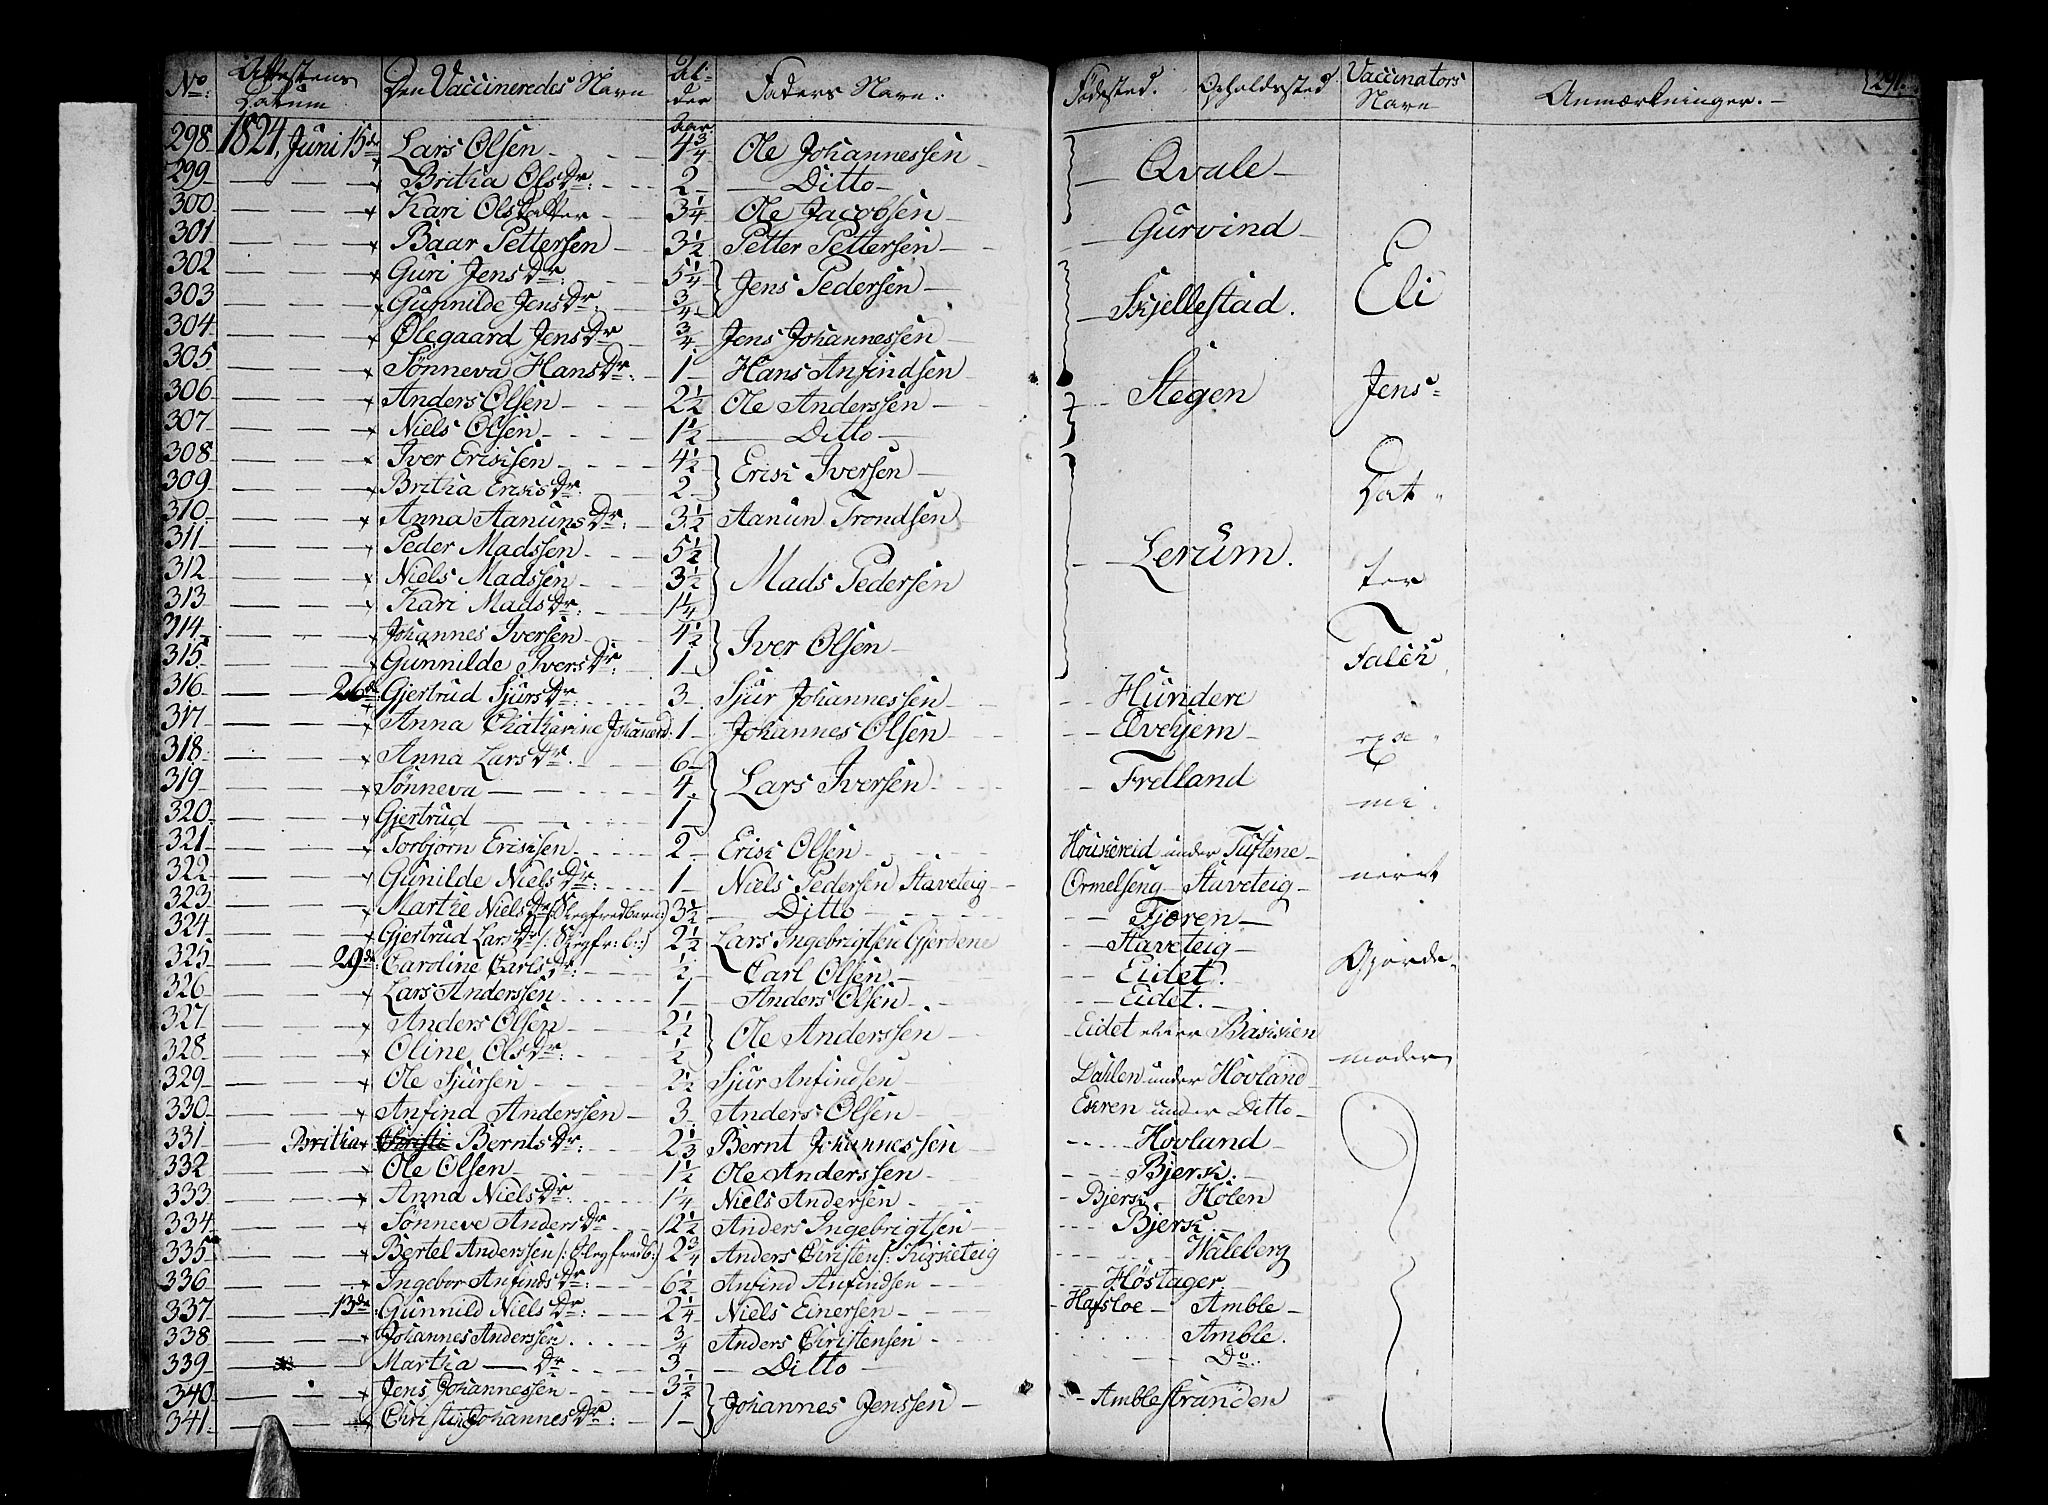 No: Attestens Datum Den Vaccineredes Navn Alder Faders Navn: Fødested. Opholdssted Vaccinators Navn Anmærkninger. 291.
Aar
298 1824, Juni 15de Lars Olsen 4 3/4 Ole Johannessen Qvale
299 — — — Britha Olsdr: 2 Ditto
300 — — — Kari Olsdatter 3 1/4 Ole Jacobsen
301 — — — Baar Pettersen 3 1/2 Petter Pettersen Gurvind
302 — — — Guri Jensdr: 5 1/4 Jens Pedersen Skjellestad. Eli
303 — — — Gunnilde Jensdr 3/4
304 — — — Ølegaard Jensdr 3/4 Jens Johannessen
305 — — — Sønneva Hansdr: 1 Hans Anfindsen
306 — — — Anders Olsen 2 1/2 Ole Anderssen Stegen Jens=
307 — — — Niels Olsen 1 1/2 Ditto
308 — — — Iver Ericksen 4 1/2 Erick Iversen
309 — — — Britha Ericksdr: 2 Dat
310 — — — Anna Aanunsdr: 3 1/2 Aanun Trondsen
311 — — — Peder Madssen 5 1/2 Mads Pedersen Lerum.
312 — — — Niels Madssen 3 1/2 ter
313 — — — Kari Madsdr: 1 1/4
314 — — — Johannes Iversen 4 1/2 Iver Olsen
315 — — — Gunnilde Iversdr: 1 Falck
316 — — 26de: Gjertrud Sjursdr 3 Sjur Johannessen Hundere
317 — — — Anna Chatharine Johanesd: 1 Johannes Olsen Elvehjem exa
318 — — — Anna Larsdr. 6 Lars Iversen Fretland
319 — — — Sønneva — 4
320 — — — Gjertrud — 1 mi
321 — — — Torbjørn Ericksen 2 Erick Olsen Houkereid under Tuftene
322 — — — Gunilde Nielsdr: 1 Niels Pedersen Staveteig Ormelseng Staveteig neret
323 — — — Marthe Nielsdr (Slegfredbarn:) 3 1/2 Ditto Fjøren
324 — — — Gjertrud Larsdr /: Slegfr: b:) 2 1/2 Lars Ingebrigtsen Gjerdene Staveteig
325 — — 29de: Caroline Carlsdr: 1/2 Carl Olsen Eidet. Gjorde
326 — — — Lars Anderssen 1 Anders Olsen Eidet.
327 — — — Anders Olsen 2 1/2 Ole Anderssen Eidet eller Backken
328 — — — Oline Olsdr: 1/2 moder
329 — — — Ole Sjursen 2 1/2 Sjur Anfindsen Dahlen under Hovland
330 — — — Anfind Anderssen 3 Anders Olsen Ekren under Ditto
331 — Britha Christi Berntsdr: 2 1/3 Bernt Johannessen Hovland
332 — — — Ole Olsen 1 1/2 Ole Anderssen Bjerk.
333 — — — Anna Nielsdr: 1 1/4 Niels Andersen Bjerk Holen
334 — — — Sønneve Andersdr 12 1/2 Anders Ingebrigtsen Bjerk
335 — — — Bertel Anderssen /: Slegfredb:) 2 3/4 Anders Christens: Kirketeig Waleberg
336 — — — Ingebor Anfindsdr: 6 1/2 Anfind Anfindsen Høstager
337 — — 13de: Gunnild Nielsdr: 2 1/4 Niels Einersen Hafsloe Amble
338 — — — Johannes Anderssen 3/4 Anders Christensen Amble.
339 — — — Martha — Dr 3 Ditto Do.
340 — — — Jens Johannessen 3 1/2 Johannes Jenssen Amblestranden
341 — — — Christi Johannesdr: 1